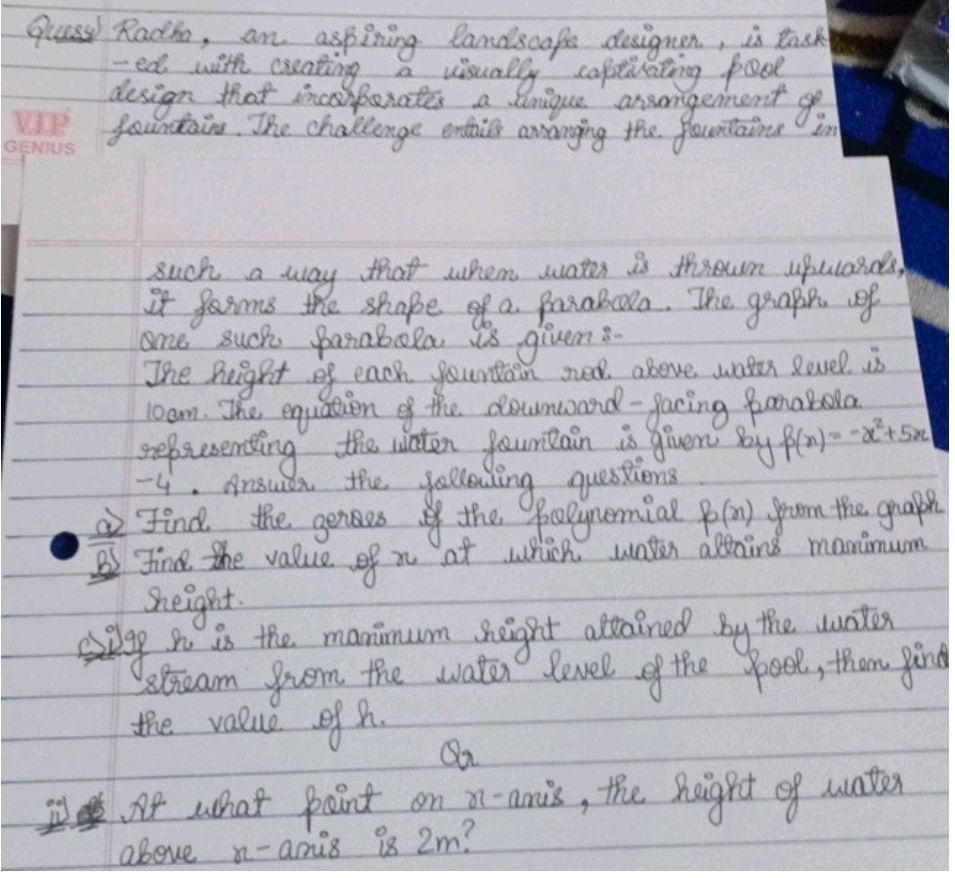 Ques) Radha, an aspiring landscape designer, is task
-ed with creating a visually captivating pool
design that incorporates a unique arrangement of
fountains. The challenge entails arranging the fountains in
VIP
GENIUS
such a way that when water is thrown upwards,
it forms the shape of a parabola. The graph of
one such parabola is given :-
The height of each fountain rod above water level is
10cm. The equation of the downward-facing parabola
representing the water fountain is given by p(x) = -x²+5x
-4. Answer the following questions
a) Find the zeroes of the polynomial p(x) from the graph
b) Find the value of x at which water attains maximum
height.
c) i) If h is the maximum height attained by the water
stream from the water level of the pool, then find
the value of h.
Or
ii) At what point on x-axis, the height of water
above x-axis is 2m?